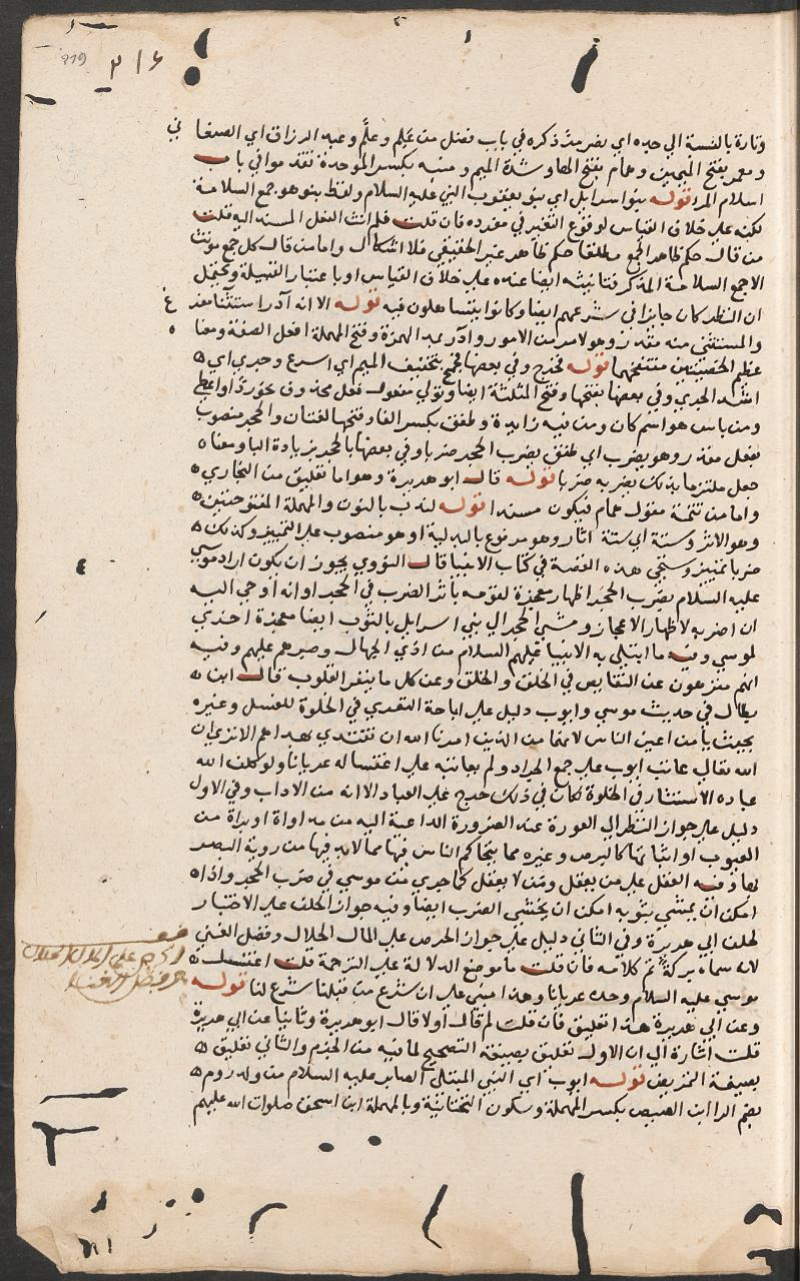 ٢١٦
وتارة بالنسبة الي جده اي نضر مرّ ذكره في باب فضل من عَلِم وعلّم وعبد الرزاق اي الصنعاني
ومعمر بفتح الميمين وهمام بفتح الها وشدّة الميم ومنبه بكسر الموحدة تقدموا في باب
اسلام المرا قوله بنوا اسرايل اي بنو يعقوب النبي عليه السلام ولفظ بنو هو جمع السلامة
لكنه علي خلاف القياس لوقوع التغير في مفرده فان قلت فلم انث الفعل المسند اليه قلت
من قال حكم ظاهر الجمع مطلقا حكم ظاهر غير الحقيقي فلا اشكال واما من قال كل جمع مونث
الا جمع السلامة المذكر فتانيثه ايضا عنده علي خلاف القياس او باعتبار القبيلة ويحتمل
ان النظر كان جايزا في شرعهم ايضا وكانوا يتساهلون فيه قوله الا انه آدر استثنا مفرغ
والمستثني منه مقدر وهو لامر من الامور وادر بمد الهمزة وفتح المهملة افعل الصفة ومعناه
عظيم الخصيتين منتفخهما قوله فخرج وفي بعضها فجمح بتخفيف الميم اي اسرع وجري اي
اشد الجري وفي بعضها بفتحها وفتح المثلثة ايضا وثوبي مفعول فعل محذوف نحو رد او اعطني
ومن باس هو اسم كان ومن فيه زايدة وطفق بكسر الفا وفتحها لغتان والحجر منصوب
بفعل مقدر وهو يضرب اي طفق يضرب الحجر ضربا وفي بعضها بالحجر بزيادة البا ومعناه
جعل ملتزما بذلك يضربه ضربا قوله قال ابو هريرة وهو اما تعليق من البخاري
واما من تتمة مقول همام فيكون مسندا قوله لندب بالنون والمهملة المفتوحتين
وهو الاثر وستة اي ستة اثار وهو مرفوع بالبدلية او هو منصوب علي التمييز وكذلك
ضربا تمييز وستجي هذه القصة في كتاب الانبيا قال النووي يجوز ان يكون اراد موسي
عليه السلام بضرب الحجر اظهار معجزة لقومه باثر الضرب في الحجر او انه اوحي اليه
ان اضربه لاظهار الاعجاز ومشي الحجر الي بني اسرايل بالثوب ايضا معجزة اخري
لموسي وفيه ما ابتلي به الانبيا عليهم السلام من اذي الجهال وصبرهم عليهم وفيه
انهم منزهون عن النقايص في الخلق والخلق وعن كل ما ينفر القلوب قال ابن
بطال في حديث موسي وايوب دليل علي اباحة التعري في الخلوة للغسل وغيره
بحيث يامن اعين الناس لانهما من الذين امرنا الله ان نقتدي بهداهم الا تري ان
الله تعالي عاتب ايوب علي جمع الجراد ولم يعاتبه علي اغتساله عريانا ولو كلف الله
عباده الاستتار في الخلوة لكان في ذلك حرج علي العباد الا انه من الاداب وفي الاول
دليل علي جواز النظر الي العورة عند الضرورة الداعية اليه من مداواة او براة من
العيوب او اثباتها كالبرص وغيره مما يتحاكم الناس فيها مما لا بد فيها من روية البصر
بها وفيه الفعل علي من يعقل ومن لا يعقل كما جري من موسي في ضرب الحجر واذا
امكن ان يمشي بثوبه امكن ان يخشي الضرب ايضا وفيه جواز الحلف علي الاخبار
لحلف ابي هريرة وفي الثاني دليل علي جواز الحرص علي المال الحلال وفضل الغني
لانه سماه بركة تم كلامه فان قلت ما موضع الدلالة علي الترجمة قلت اغتسل
موسي عليه السلام وحده عريانا وهذا مبني علي ان شرع من قبلنا شرع لنا قوله
وعن ابي هريرة هذا تعليق فان قلت لم قال اولا قال ابو هريرة وثانيا عن ابي هريرة
قلت اشارة الي ان الاول تعليق بصيغة التصحيح لما فيه من الجزم والثاني تعليق
بصيغة التمريض قوله ايوب اي النبي المبتلي الصابر عليه السلام من ولد روم
بضم الرا ابن العيص بكسر المهملة وسكون التحتانية وبالمهملة ابن اسحق صلوات الله عليهم
الحرص علي المال الحلال
وفضل الغنا